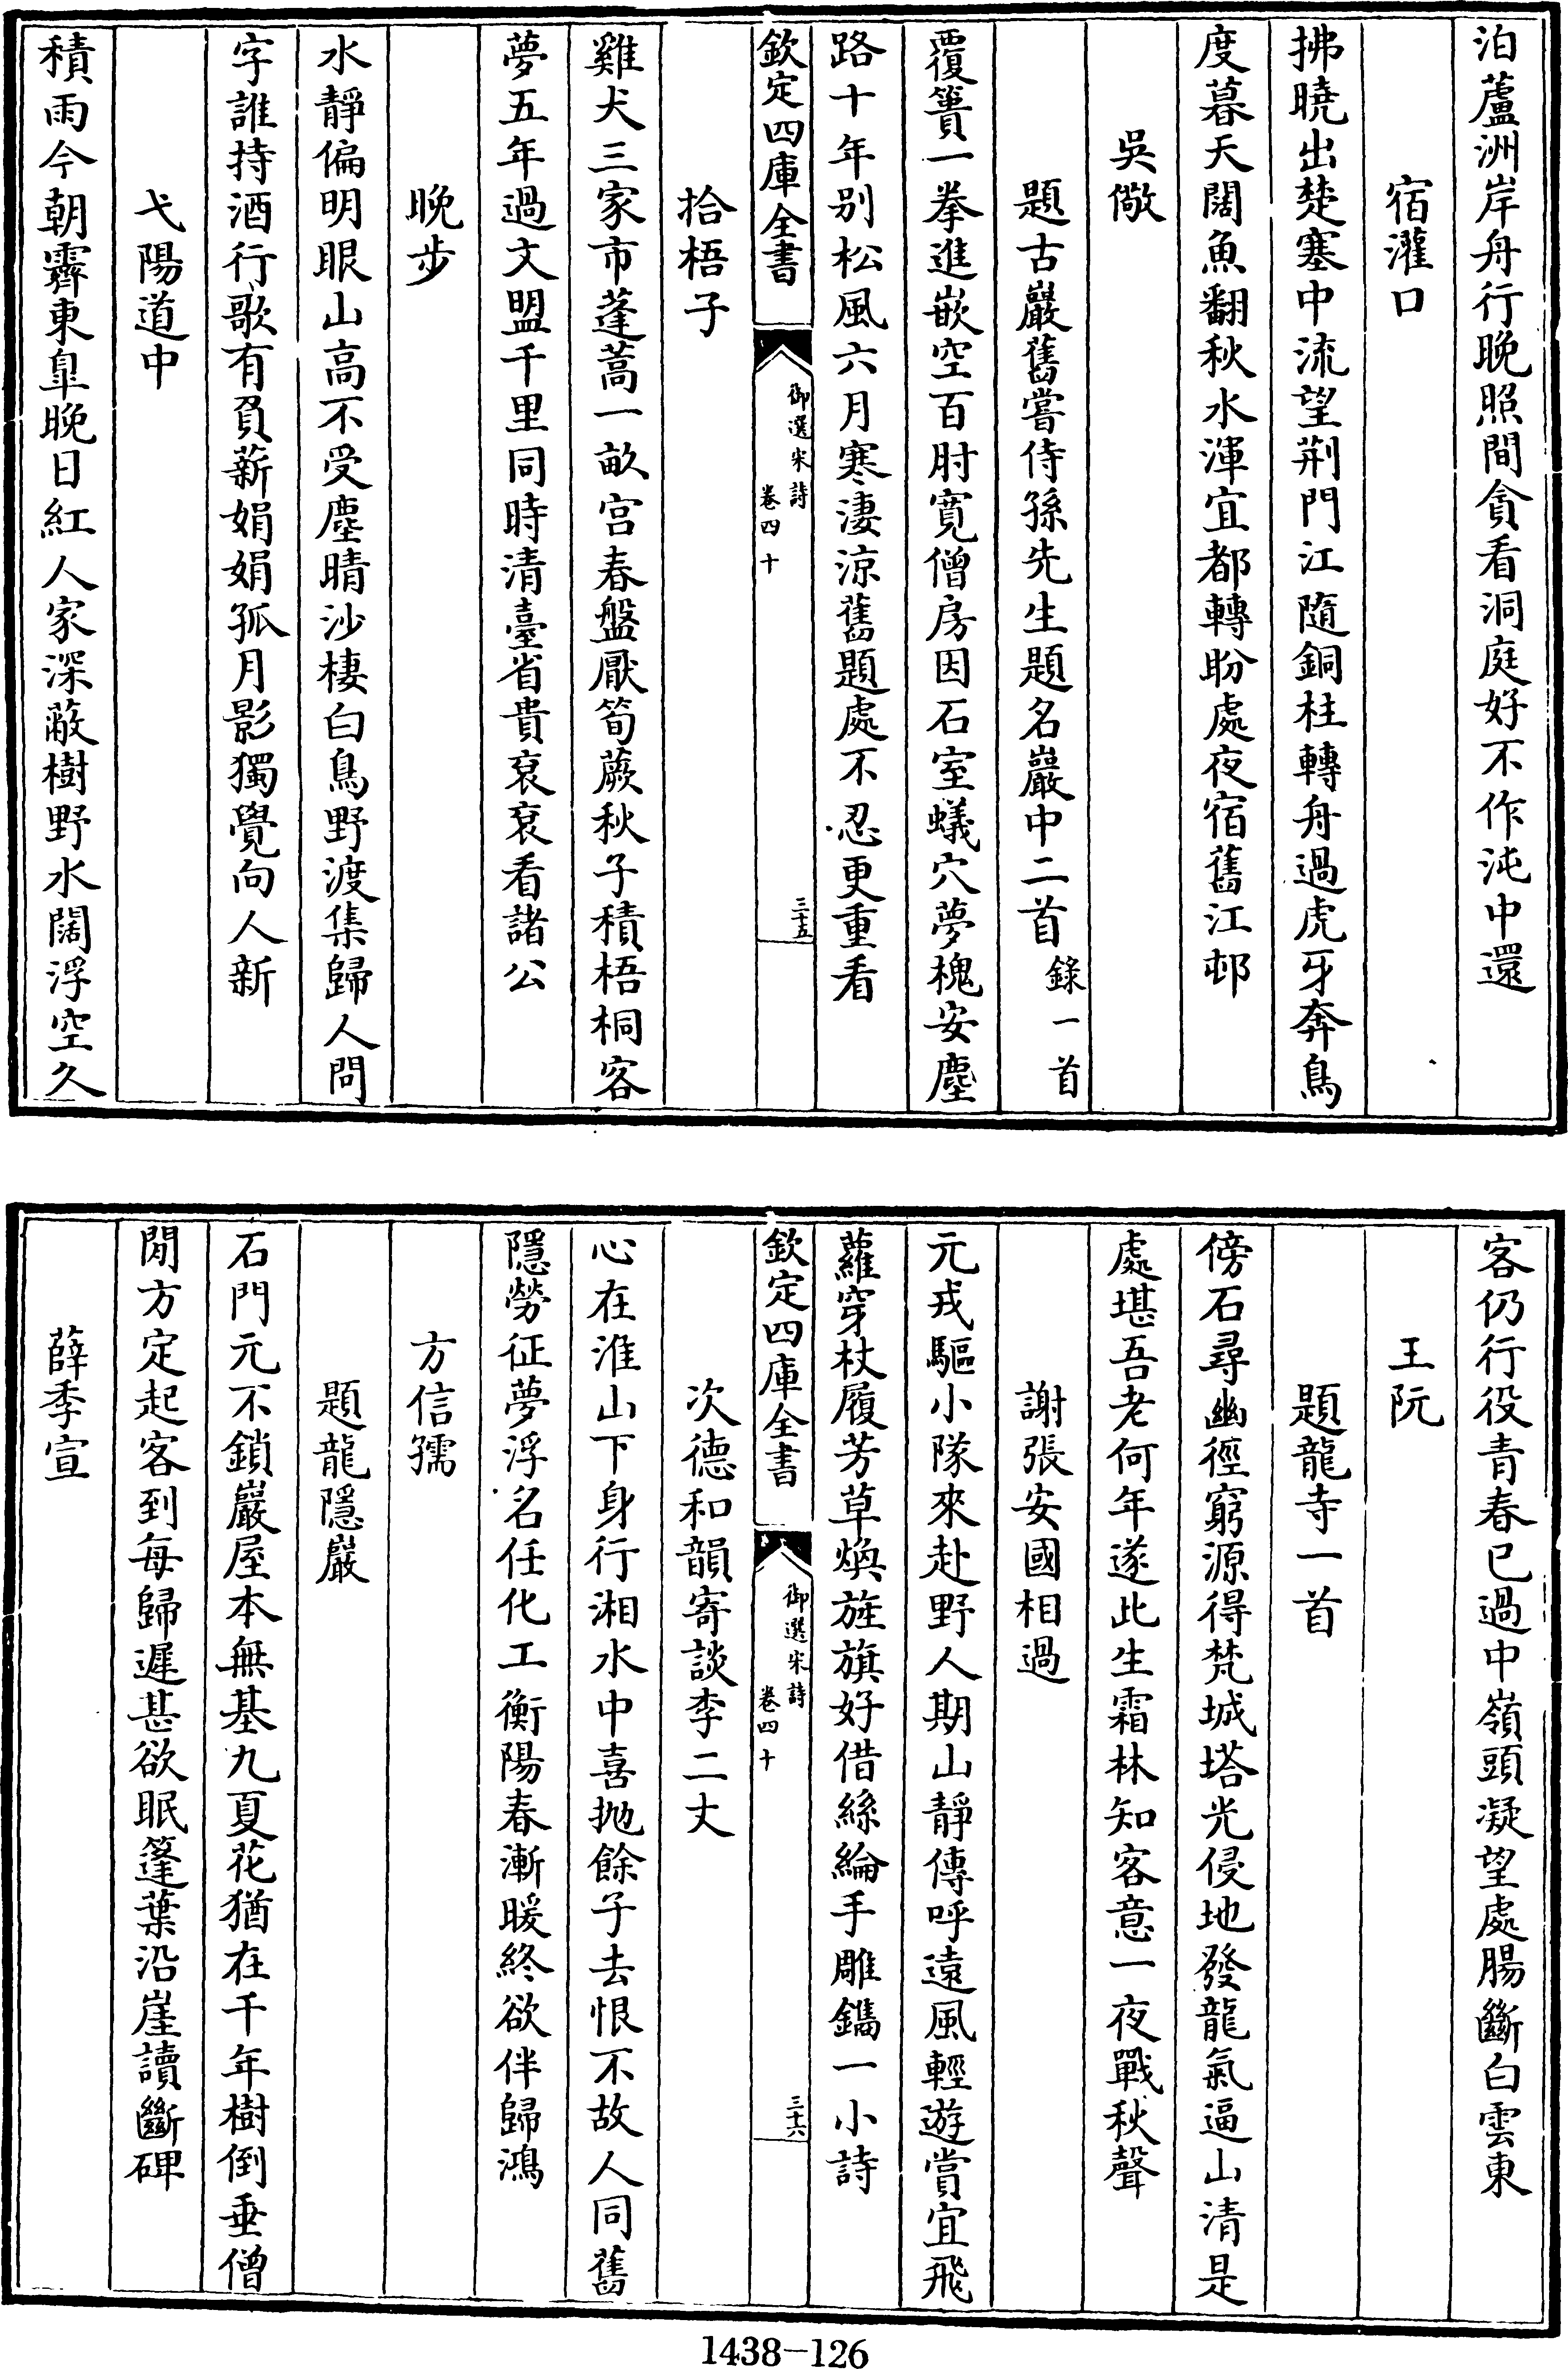 泊蘆洲岸舟行晚照間貪看洞庭好不作沌中還
宿灌口
拂曉出楚塞中流望荆門江隨銅柱轉舟過虎牙奔鳥
度暮天闊魚翻秋水渾宜都轉盼處夜宿舊江邨
吳儆
題古巖舊嘗侍孫先生題名巖中二首錄一首
覆簣一拳進嵌空百肘寬僧房因石室蟻穴夢槐安塵
路十年别松風六月寒淒涼舊題處不忍更重看
欽定四庫全書 御選宋詩 卷四十 三十五
拾梧子
雞犬三家市蓬蒿一畝宫春盤厭筍蕨秋子積梧桐客
夢五年過文盟千里同時清臺省貴袞袞看諸公
晚步
水靜偏明眼山高不受塵晴沙棲白鳥野渡集歸人問
字誰持酒行歌有負薪娟娟孤月影獨覺向人新
弋陽道中
積雨今朝霽東臯晚日紅人家深蔽樹野水闊浮空久
客仍行役青春已過中嶺頭凝望處腸斷白雲東
王阮
題龍寺一首
傍石尋幽徑窮源得梵城塔光侵地發龍氣逼山清是
處堪吾老何年遂此生霜林知客意一夜戰秋聲
謝張安國相過
元戎驅小隊來赴野人期山靜傳呼遠風輕遊賞宜飛
蘿穿杖履芳草煥旌旗好借絲綸手雕鐫一小詩
欽定四庫全書 御選宋詩 卷四十 三十六
次德和韻寄談李二丈
心在淮山下身行湘水中喜抛餘子去恨不故人同舊
隱勞征夢浮名任化工衡陽春漸暖終欲伴歸鴻
方信孺
題龍隱巖
石門元不鎖巖屋本無基九夏花猶在千年樹倒垂僧
閒方定起客到每歸遲甚欲眠篷葉沿崖讀斷碑
薛季宣
1438-126